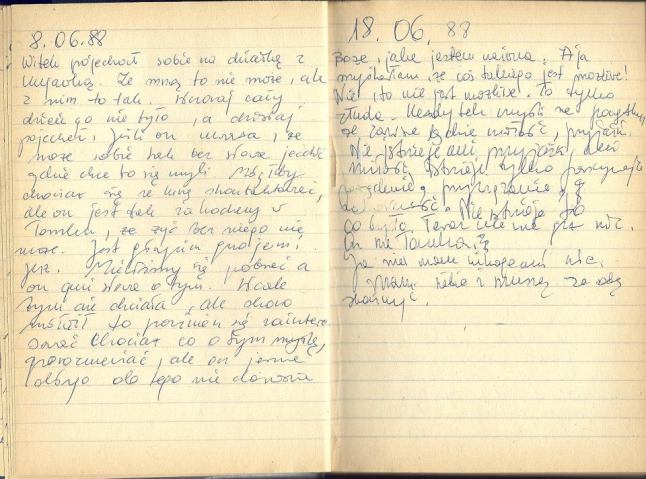 8.06.88
Witek pojechał sobie na działkę z
Kujawką. Ze mną to nie może, ale
z nim to tak. Wczoraj cały
dzień go nie było, a dzisiaj
pojechał. Jeśli on uważa, że
może sobie tak bez słowa jeździć
gdzie chce to się myli. Mógłby
chociaż się ze mną skontaktować,
ale on jest tak zakochany w
Tomku, że żyć bez niego nie
może. Jest głupim
już. Mieliśmy się pobrać a
on ani słowa o tym. Wcale
bym nie chciała, ale skoro
to powinien się zaintere
sować chociaż co o tym myślę,
porozmawiać, ale on jesz
do tego nie
18.06.88
Boże, jaka jestem naiwna. A ja
myślałam, że coś takiego jest możliwe!
Nie, to nie jest możliwe. To tylko
złuda. Każdy tak myśli na początku,
że zawsze będzie miłość, przyjaźń.
Nie istnieje ani przyjaźń, ani
miłość, istnieje tylko
pożądanie, przywiązanie,
Nie istnieje to
co było. Teraz już nic.
On ma Tomka,
ja nie mam nikogo ani nic.
Mam siebie i muszę za